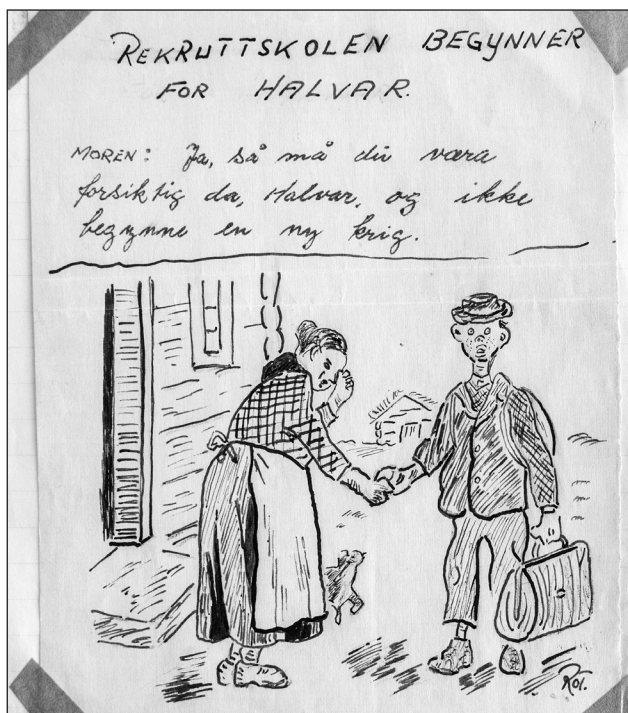 REKRUTTSKOLEN BEGYNNER
FOR HALVAR.
MOREN: Ja, så må du væra
forsiktig da, Halvar, og ikke
begynne en ny krig.
Rot.